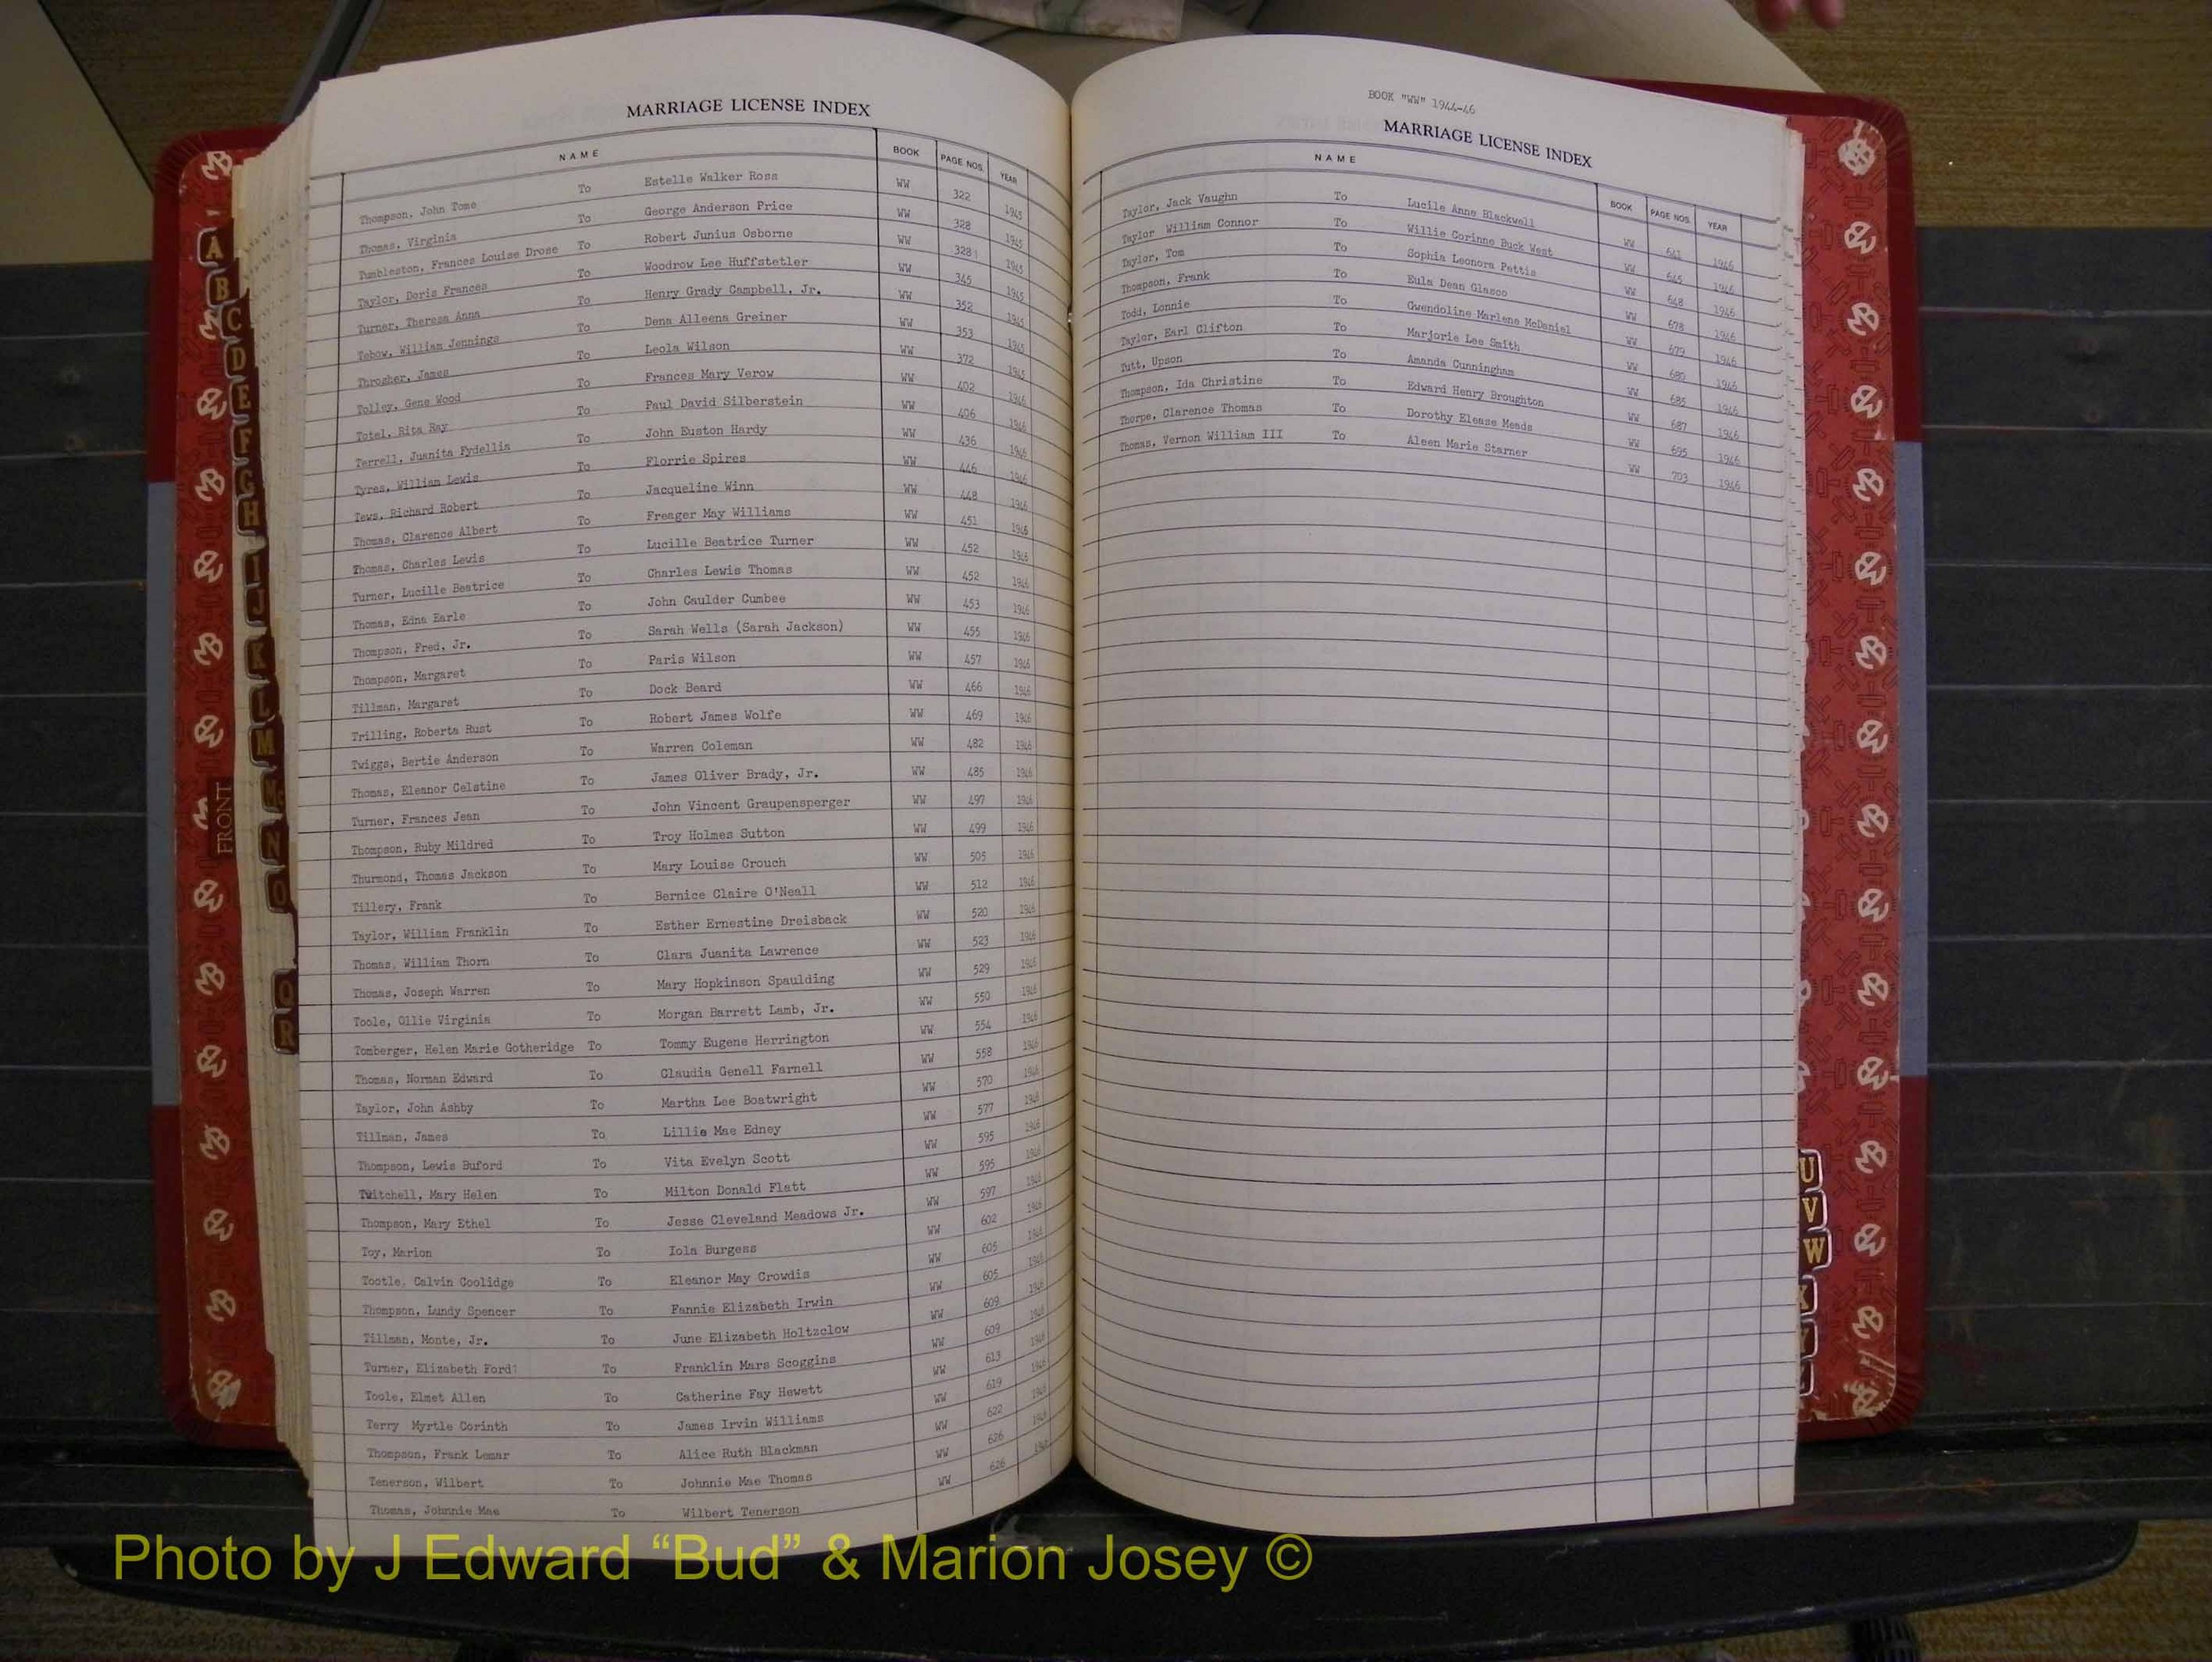 MARRIAGE LICENSE INDEX
NAME BOOK PAGE NOS. YEAR
Thompson, John Tome To Estelle Walker Ross WW 322 1945
Thomas, Virginia To George Anderson Price WW 328 1945
Tumbleston, Frances Louise Drose To Robert Junius Osborne WW 328 1945
Taylor, Doris Frances To Woodrow Lee Huffstetler WW 345 1945
Turner, Theresa Anna To Henry Grady Campbell, Jr. WW 352 1945
Tebow, William Jennings To Dena Alleena Greiner WW 353 1945
Throgher, James To Leola Wilson WW 372 1945
Tolley, Gene Wood To Frances Mary Verow WW 402 1946
Totel, Rita Ray To Paul David Silberstein WW 406 1946
Terrell, Juanita Fydellis To John Euston Hardy WW 436 1946
Tyres, William Lewis To Florrie Spires WW 446 1946
Tews, Richard Robert To Jacqueline Winn WW 448 1946
Thomas, Clarence Albert To Freager May Williams WW 451 1946
Thomas, Charles Lewis To Lucille Beatrice Turner WW 452 1946
Turner, Lucille Beatrice To Charles Lewis Thomas WW 452 1946
Thomas, Edna Earle To John Caulder Cumbee WW 453 1946
Thompson, Fred, Jr. To Sarah Wells (Sarah Jackson) WW 455 1946
Thompson, Margaret To Paris Wilson WW 457 1946
Tillman, Margaret To Dock Beard WW 466 1946
Trilling, Roberta Rust To Robert James Wolfe WW 469 1946
Twiggs, Bertie Anderson To Warren Coleman WW 482 1946
Thomas, Eleanor Celstine To James Oliver Brady, Jr. WW 485 1946
Turner, Frances Jean To John Vincent Graupensperger WW 497 1946
Thompson, Ruby Mildred To Troy Holmes Sutton WW 499 1946
Thurmond, Thomas Jackson To Mary Louise Crouch WW 505 1946
Tillery, Frank To Bernice Claire O'Neall WW 512 1946
Taylor, William Franklin To Esther Ernestine Dreisback WW 520 1946
Thomas, William Thorn To Clara Juanita Lawrence WW 523 1946
Thomas, Joseph Warren To Mary Hopkinson Spaulding WW 529 1946
Toole, Ollie Virginia To Morgan Barrett Lamb, Jr. WW 550 1946
Tomberger, Helen Marie Gotheridge To Tommy Eugene Herrington WW 554 1946
Thomas, Norman Edward To Claudia Genell Farnell WW 558 1946
Taylor, John Ashby To Martha Lee Boatwright WW 570 1946
Tillman, James To Lillie Mae Edney WW 577 1946
Thompson, Lewis Buford To Vita Evelyn Scott WW 595 1946
Twitchell, Mary Helen To Milton Donald Flatt WW 595 1946
Thompson, Mary Ethel To Jesse Cleveland Meadows Jr. WW 597 1946
Toy, Marion To Iola Burgess WW 602 1946
Tootle, Calvin Coolidge To Eleanor May Crowdis WW 605 1946
Thompson, Lundy Spencer To Fannie Elizabeth Irwin WW 605 1946
Tillman, Monte, Jr. To June Elizabeth Holtzclow WW 609 1946
Turner, Elizabeth Ford To Franklin Mars Scoggins WW 609 1946
Toole, Elmet Allen To Catherine Fay Hewett WW 613 1946
Terry Myrtle Corinth To James Irvin Williams WW 619 1946
Thompson, Frank Lemar To Alice Ruth Blackman WW 622 1946
Tenerson, Wilbert To Johnnie Mae Thomas WW 626 1946
Thomas, Johnnie Mae To Wilbert Tenerson WW 626 1946
BOOK "WW" 1944-46
MARRIAGE LICENSE INDEX
NAME BOOK PAGE NOS. YEAR
Taylor, Jack Vaughn To Lucile Anne Blackwell WW 641 1946
Taylor William Connor To Willie Corinne Buck West WW 645 1946
Taylor, Tom To Sophia Leonora Pettis WW 648 1946
Thompson, Frank To Eula Dean Glasco WW 678 1946
Todd, Lonnie To Gwendoline Marlene McDaniel WW 679 1946
Taylor, Earl Clifton To Marjorie Lee Smith WW 680 1946
Tutt, Upson To Amanda Cunningham WW 685 1946
Thompson, Ida Christine To Edward Henry Broughton WW 687 1946
Thorpe, Clarence Thomas To Dorothy Elease Meads WW 695 1946
Thomas, Vernon William III To Aleen Marie Starner WW 703 1946
A
B
C
D
E
F
G
H
I
J
K
L
M
Mc
N
O
Q
R
FRONT
U
V
W
X
Y
Photo by J Edward “Bud” & Marion Josey ©